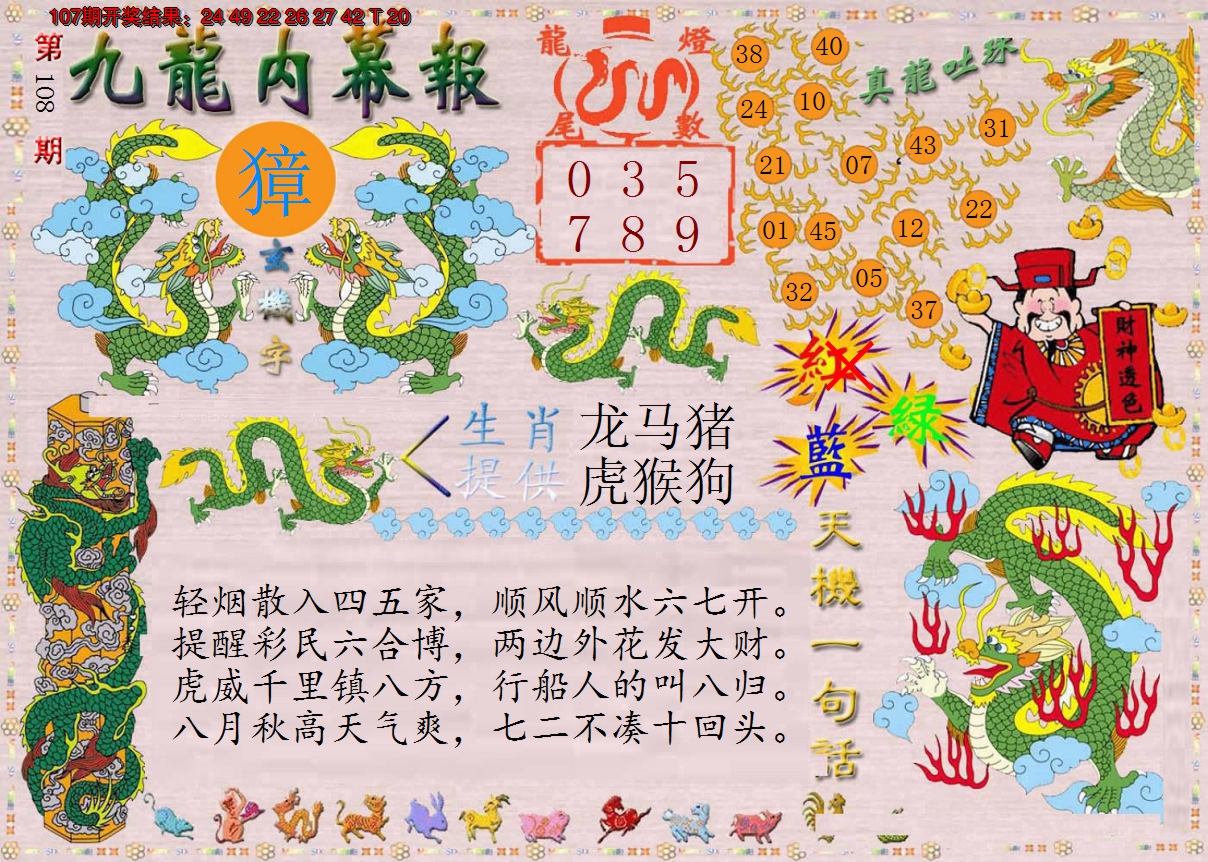 107期开奖结果：24 49 22 26 27 42 T 20
第108期
九龍内幕報
獐
玄機字
龍燈
尾數
0 3 5
7 8 9
真龍吐珠
38
40
24
10
31
43
21
07
22
01
45
12
05
32
37
財神透色
紅
綠
藍
生肖 龙马猪
提供 虎猴狗
天機一句话
轻烟散入四五家，顺风顺水六七开。
提醒彩民六合博，两边外花发大财。
虎威千里镇八方，行船人的叫八归。
八月秋高天气爽，七二不凑十回头。